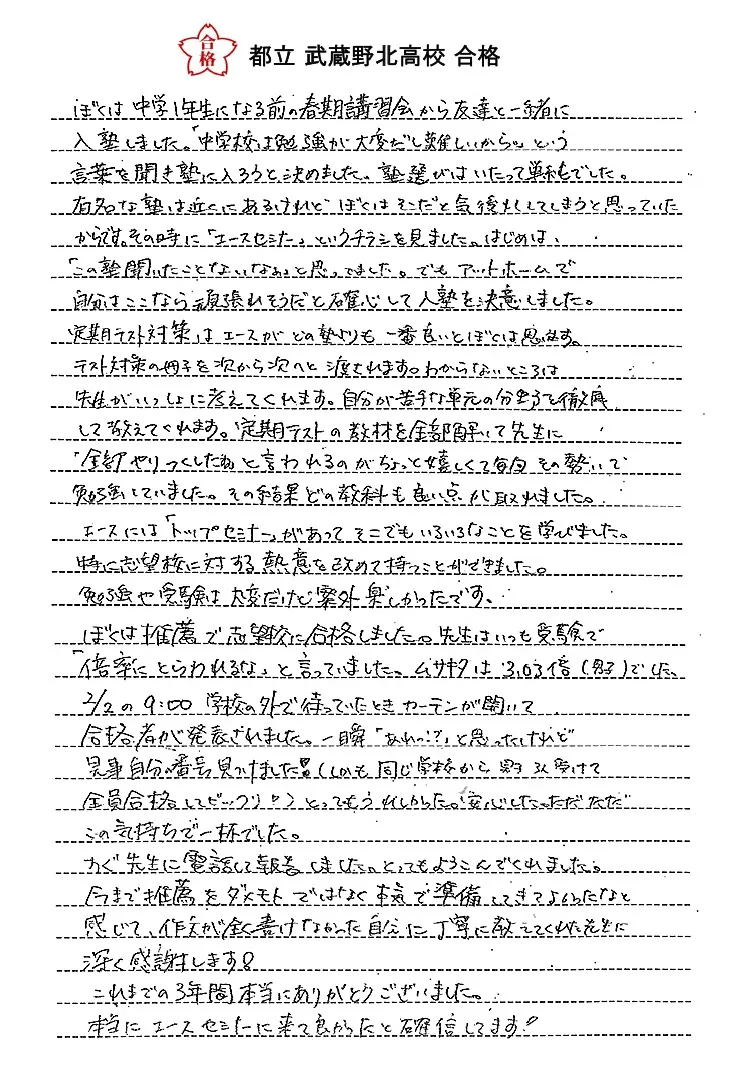 合格
都立 武蔵野北高校 合格
ぼくは中学1年生になる前の春期講習会から友達と一緒に
入塾しました。「中学校は勉強が大変だし難しいから」という
言葉を聞き塾に入ろうと決めました。塾選びはいたって単純でした。
有名な塾は近くにあるけれど ぼくはそこだと気後れしてしまうと思っていた
からです。その時に「エースセミナー」というチラシを見ました。はじめは、
「この塾聞いたことないなぁ」と思ってました。でもアットホームで
自分はここなら頑張れそうだと確心して入塾を決意しました。
定期テスト対策はエースがどの塾よりも一番良いとぼくは思います。
テスト対策の冊子を次から次へと渡されます。わからないところは
先生がいっしょに考えてくれます。自分が苦手な単元の分野を徹底
して教えてくれます。定期テストの教材を全部解いて先生に
「全部やりつくしたね」と言われるのがちょっと嬉しくて毎回その勢いで
勉強していました。その結果どの教科も良い点が取れました。
エースには「トップセミナー」があってそこでもいろいろなことを学びました。
特に志望校に対する熱意を改めて持つことができました。
勉強や受験は大変だけど案外楽しかったです。
ぼくは推薦で志望校に合格しました。先生はいつも受験で
「倍率にとらわれるな」と言っていました。ムサキタは3.03倍(男子)でした。
2/2の9:00 学校の外で待っていたときカーテンが開いて
合格者が発表されました。一瞬「あれっ!?」と思ったけれど
見事自分の番号見つけました!!(しかも同じ学校から男子3人受けて
全員合格してビックリ!?)とってもうれしかった。安心した。ただただ
この気持ちで一杯でした。
すぐ先生に電話して報告しました。とってもよろこんでくれました。
今まで推薦をダメモトではなく本気で準備してきてよかったなと
感じて、作文が全く書けなかった自分に丁寧に教えてくれた先生に
深く感謝します!
これまでの3年間本当にありがとうございました。
本当にエースセミナーに来て良かったと確信してます!